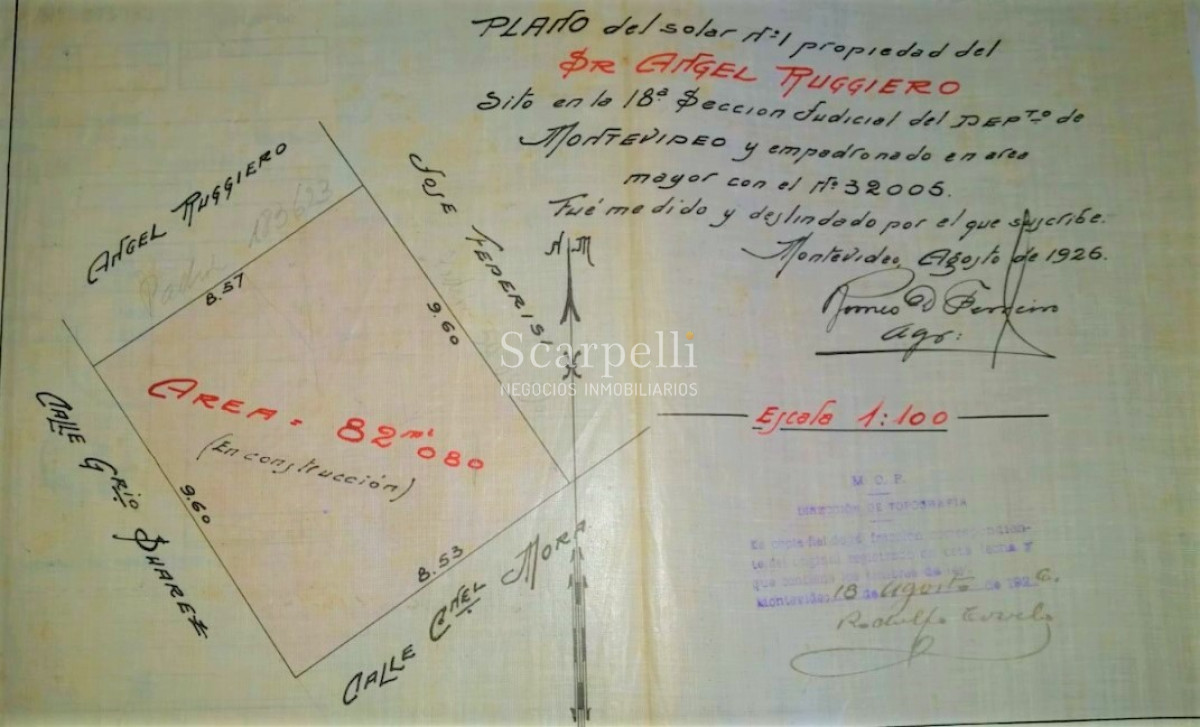 PLANO del solar Nº1 propiedad del
SR ANGEL RUGGIERO
Sito en la 18ª Seccion Judicial del DEPTO de
MONTEVIDEO y empadronado en area
mayor con el Nº 32005.
Fué medido y deslindado por el que suscribe.
Montevideo, Agosto de 1926.
Agr:
Escala 1:100
ANGEL RUGGIERO
183633
Padrón
8.57
JOSE
9.60
N M
Scarpelli
NEGOCIOS INMOBILIARIOS
AREA = 82 m² 080
(En construcción)
CALLE GRIO SUAREZ
9.60
8.53
CALLE CNEL MORA
M. O. P.
DIRECCIÓN DE TOPOGRAFIA
Es copia fiel
Montevideo, 18 de Agosto de 1926.
Rodolfo